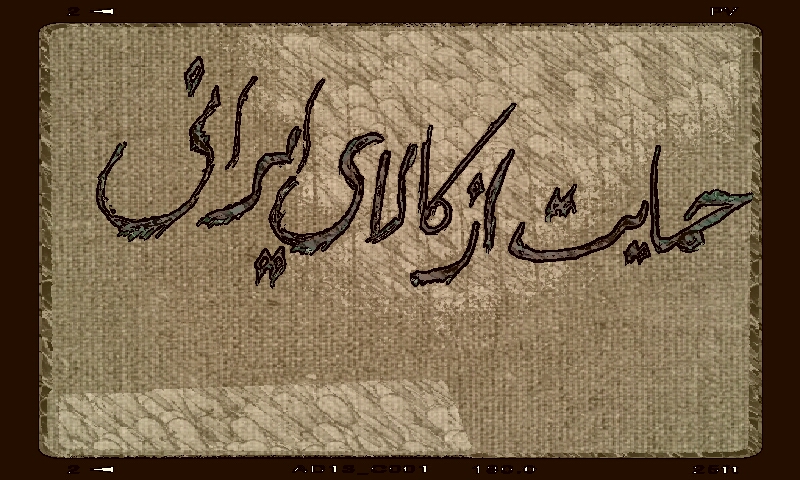 حمایت از کالای ایرانی